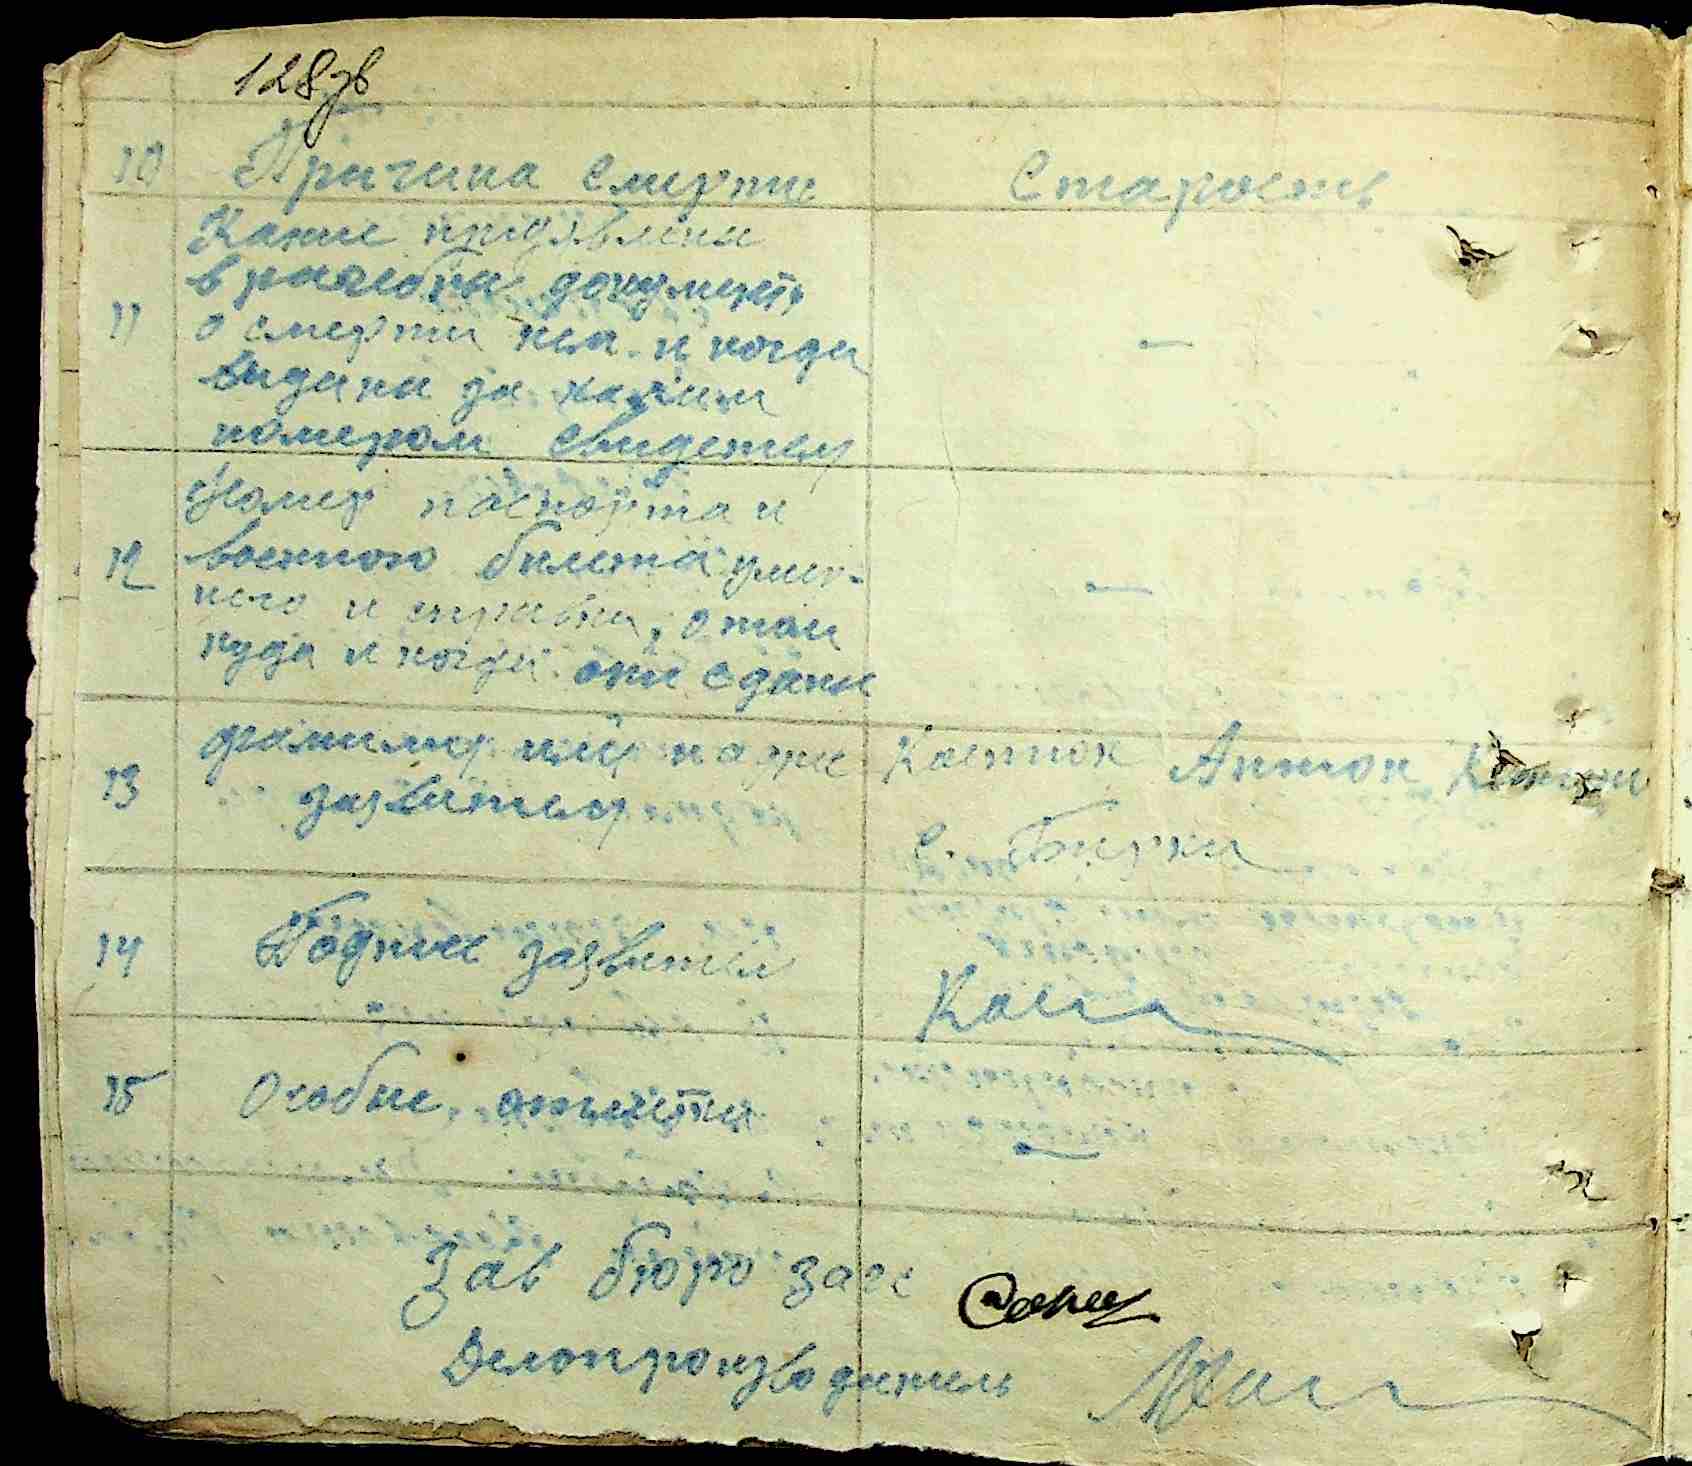 128зв
10 Причина смерти Старость
Какие предявлены
в рагсбюро документ
11 о смерти кем и когда —
видани за каким
номером свидетел
Номер паспорта и
12 военного билета умер- —
шего и справка, о том
куда и когда они сдани
13 фамилия имя и адрес Костюк Антон
заявителя с. Бирки
14 Подпис заявителя
15 Особые отметки —
Зав бюро загс
Делопроизводитель